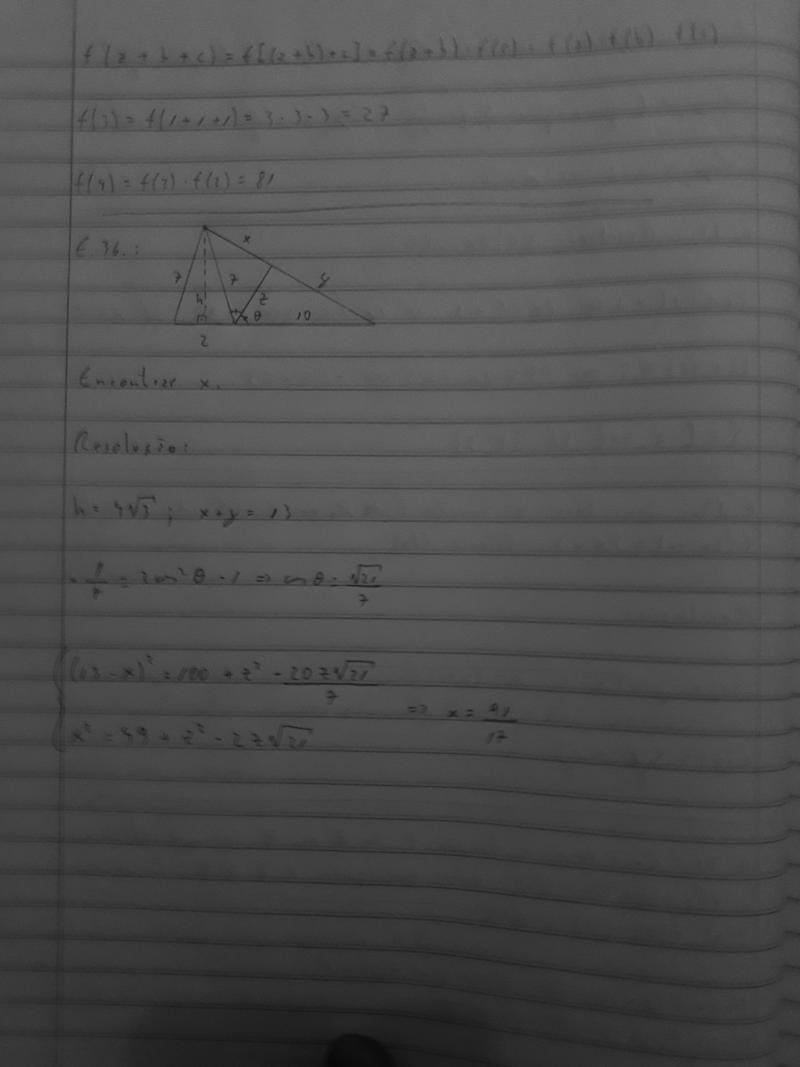 f(a + b + c) = f[(a+b)+c] = f(a+b) · f(c) = f(a) · f(b) · f(c)
f(3) = f(1+1+1) = 3 · 3 · 3 = 27
f(4) = f(2) · f(2) = 81
E 36.:
x
7
7
y
h
z
θ
10
2
Encontrar x.
Resolução:
h = 4√3 ; x+y = 13
-1/7 = 2cos² θ - 1 => cos θ = √21/7
(13 - x)² = 100 + z² - 20z√21/7
=> x = 91/17
x² = 49 + z² - 2z√21